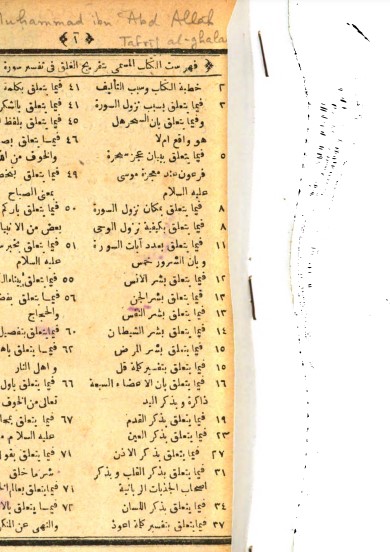 uhammad ibn Abd Allah
﴿ ٢ ﴾
Tafrij al-ghala
﴿ فهرست الكتاب المسمى بتفريج الغلق فى تفسير سورة
٢ خطبة الكتاب وسبب التأليف
٣ فيما يتعلق بسبب نزول السورة
وفيما يتعلق بان السحر هل
هو واقع ام لا
٥ فيما يتعلق ببيان عجز سحرة
فرعون عند معجزة موسى
عليه السلام
٨ فيما يتعلق بمكان نزول السورة
٨ فيما يتعلق بكيفية نزول الوحى
١١ فيما يتعلق بعدد آيات السورة
وبان الشرور خمس
١٢ فيما يتعلق بشر الانس
١٣ فيما يتعلق بشر الجن
١٣ فيما يتعلق بشر النفس
١٤ فيما يتعلق بشر الشيطان
١٥ فيما يتعلق بشر المرض
١٥ فيما يتعلق بتفسير كلمة قل
١٦ فيما يتعلق بان الاعضاء السبعة
ذاكرة وبذكر اليد
١٩ فيما يتعلق بذكر القدم
٢٣ فيما يتعلق بذكر العين
٢٧ فيما يتعلق بذكر الاذن
٣١ فيما يتعلق بذكر القلب وبذكر
اصحاب الجذبات الربانية
٣٤ فيما يتعلق بذكر اللسان
٣٧ فيما يتعلق بتفسير كلمة اعوذ
٤١ فيما يتعلق بكلمة
٤١ فيما يتعلق بالشكر
٤٥ فيما يتعلق بلفظ
٤٦ فيما يتعلق
والخوف من
٤٩ فيما يتعلق
بمعنى الصباح
٥٠ فيما يتعلق
بعض من الانبيا
٥١ فيما يتعلق
عليه السلام
٥٥ فيما يتعلق
٥٦ فيما يتعلق
والحجاج
٦٠ فيما يتعلق بتفصيل
٦٢ فيما يتعلق
واهل النار
٦٦ فيما يتعلق باول
تعالى من الخوف
٦٧ فيما يتعلق
عليه السلام
٧١ فيما يتعلق بقو
شر ما خلق
٧١ فيما يتعلق بعالم
٧٢ فيما يتعلق
والنهى عن المنكر